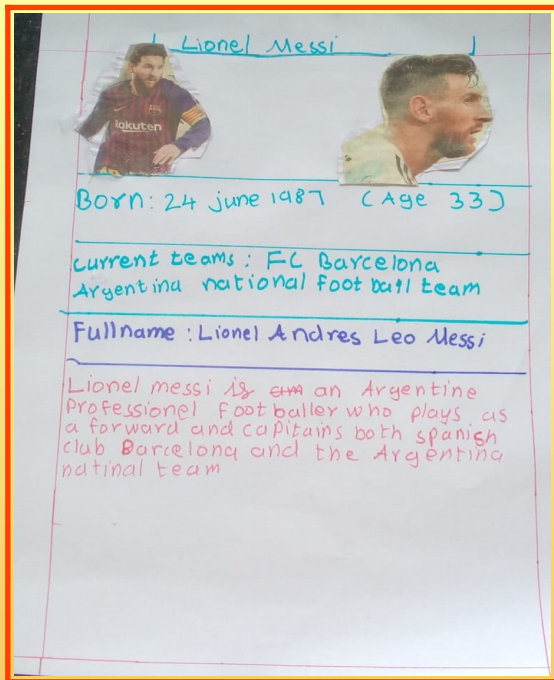 Lionel Messi
Rakuten
Born: 24 june 1987 (Age 33)
Current teams: FC Barcelona
Argentina national football team
Fullname: Lionel Andres Leo Messi
Lionel messi is am an Argentine
Professionel footballer who plays as
a forward and capitains both spanish
club Barcelona and the Argentina
natinal team